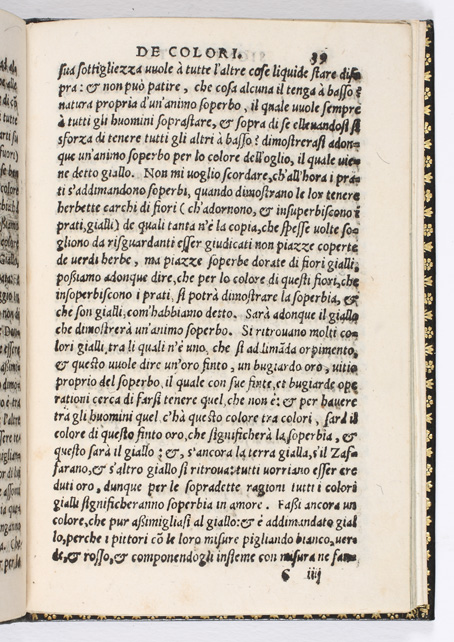 DE COLORI. 39
sua sottigliezza vuole à tutte l'altre cose liquide stare di so
pra: & non può patire, che cosa alcuna il tenga à basso:
natura propria d'un'animo soperbo, il quale vuole sempre
à tutti gli huomini soprastare, & sopra di se ellevandosi si
sforza di tenere tutti gli altri à basso: dimostrerasi adon
que un'animo soperbo per lo colore dell'oglio, il quale vie
ne detto giallo. Non mi voglio scordare, ch'all'hora i pra
ti s'addimandono soperbi, quando dimostrano le lor tenere
herbette carchi di fiori (ch'adornono, & insuperbiscono i
prati, gialli) de quali tanta n'è la copia, che spesse volte so
gliono da risguardanti esser giudicati non piazze coperte
de verdi herbe, ma piazze soperbe dorate di fiori gialli;
possiamo adonque dire, che per lo colore di questi fiori, che
insoperbiscono i prati, si potrà dimostrare la soperbia, &
che son gialli, com'habbiamo detto. Sarà adonque il giallo
che dimostrerà un'animo soperbo. Si ritrovano molti co
lori gialli, tra li quali n'è uno, che si ad limãda orpimento,
& questo vuole dire un'oro finto, un bugiardo oro, vitio
proprio del soperbo, il quale con sue finte, et bugiarde ope
rationi cerca di farsi tenere quel, che non è: & per havere
tra gli huomini quel c'hà questo colore tra colori, sarà il
colore di questo finto oro, che significherà la soperbia, &
questo sarà il giallo: &, s'ancora la terra gialla, s'il Zaf
farano, & s'altro giallo si ritrova: tutti vorriano esser cre
duti oro, dunque per le sopradette ragioni tutti i colori
gialli significheranno soperbia in amore. Fassi ancora un
colore, che pur assimigliasi al giallo: & è addimandato gial
lo, perche i pittori cõ le loro misure pigliando bianco, ver
de, & rosso, & componendogli insieme con misura ne fan
6 iiij